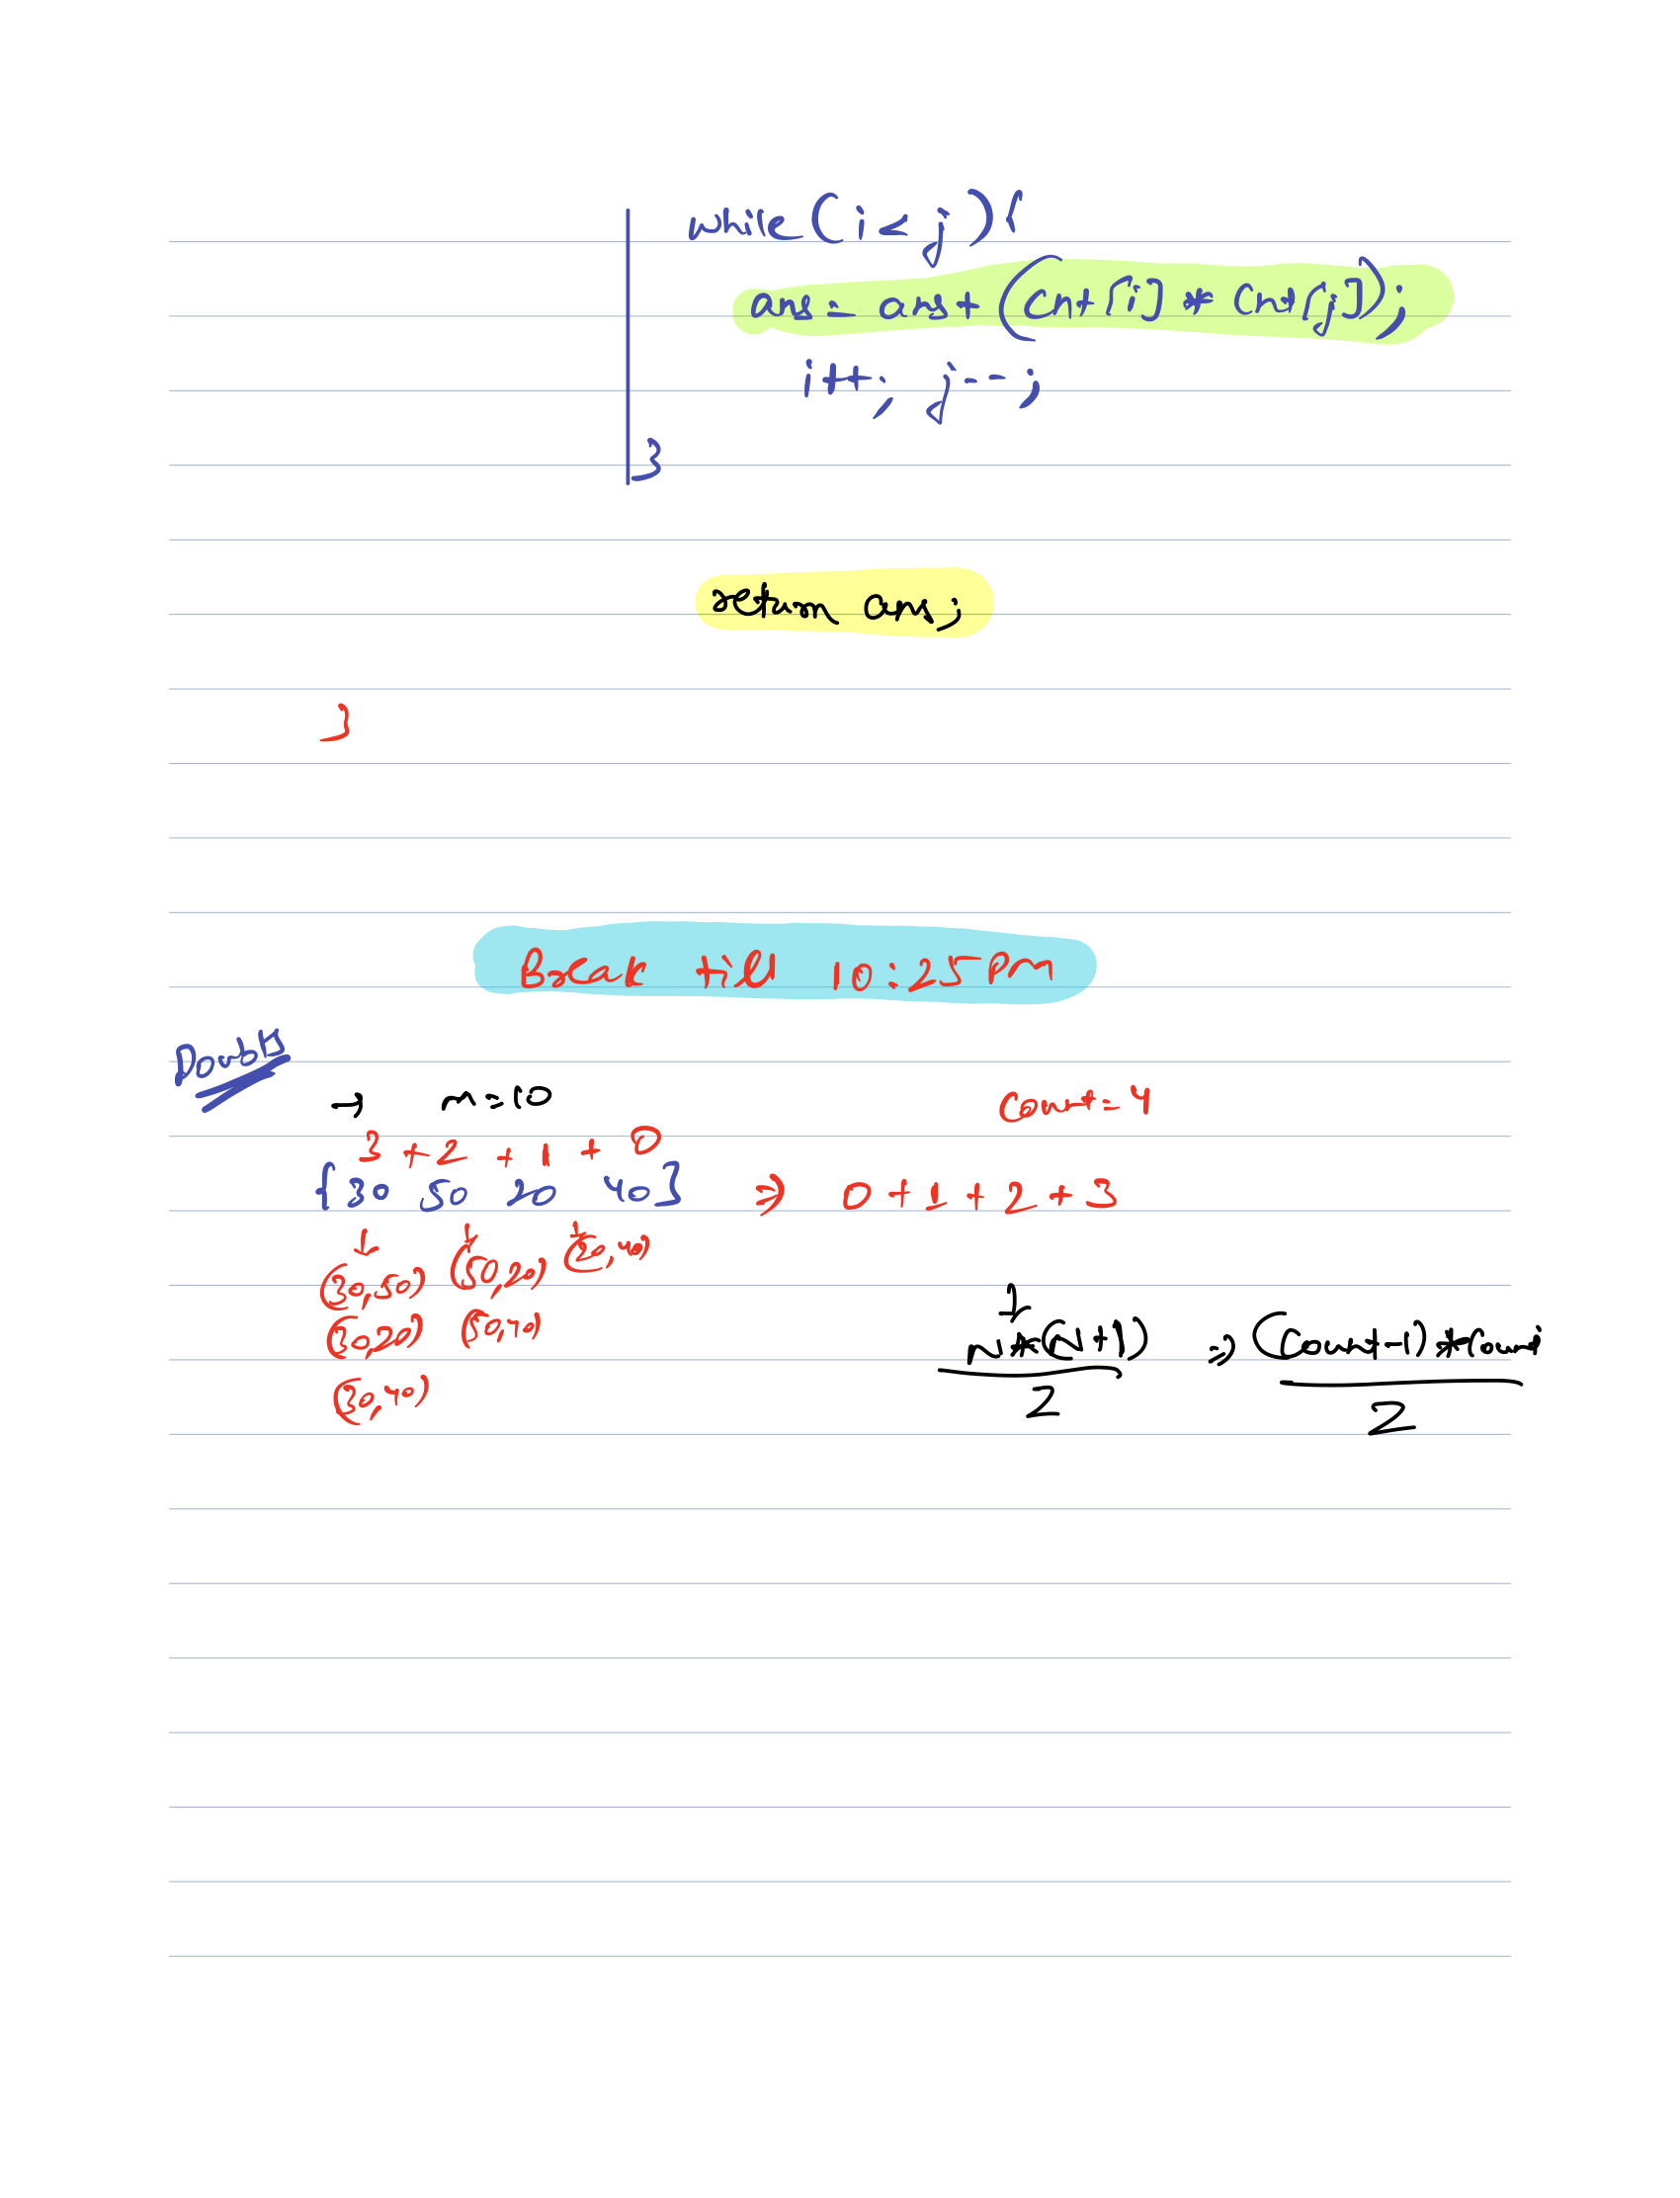 while(i<j){
ans = ans + (cnt[i] * cnt[j]);
i++; j--;
}
return ans;
}
Break till 10:25 Pm
Doubts
→ m=10 Count=4
3 + 2 + 1 + 0
{30 50 20 40} ⇒ 0 + 1 + 2 + 3
↓ ↓ ↓
(30,50) (50,20) (20,40)
(30,20) (50,40)
(30,40)
N*(N+1) ⇒ (Count-1)*Count
2 2